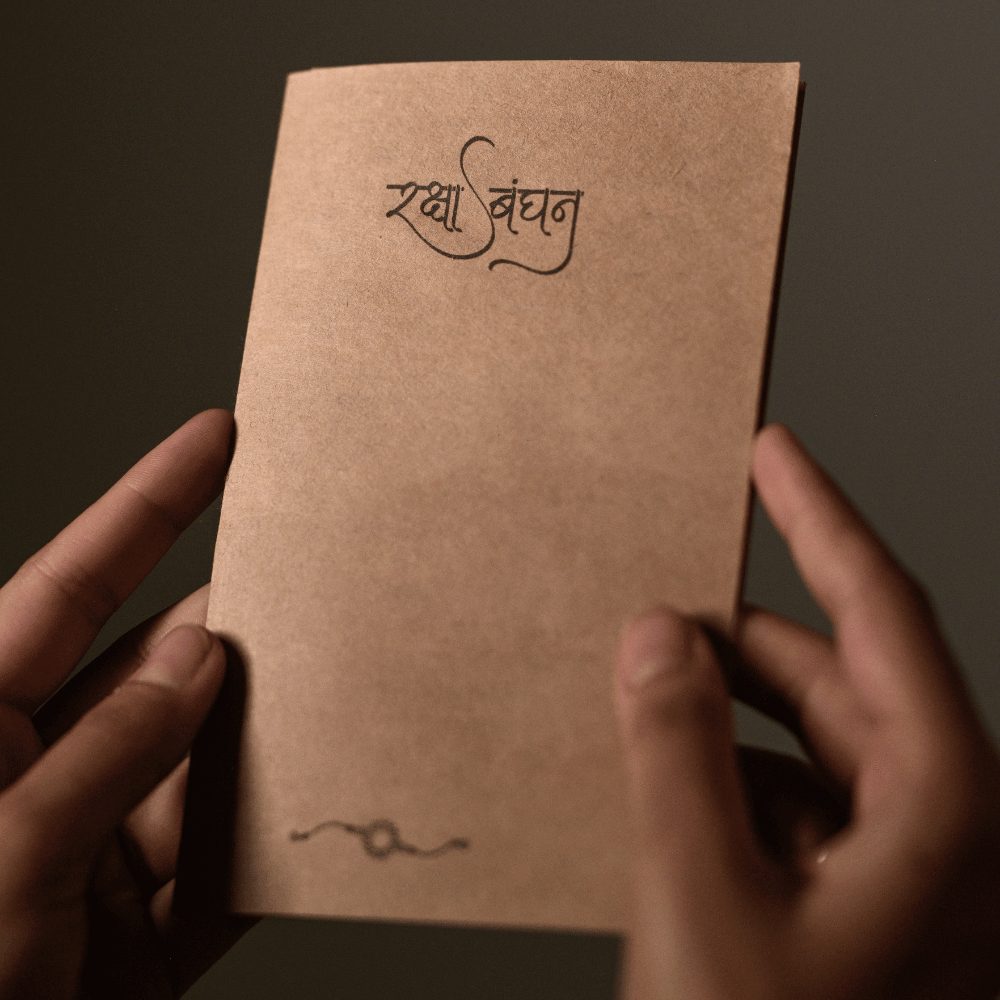 रक्षा बंघन